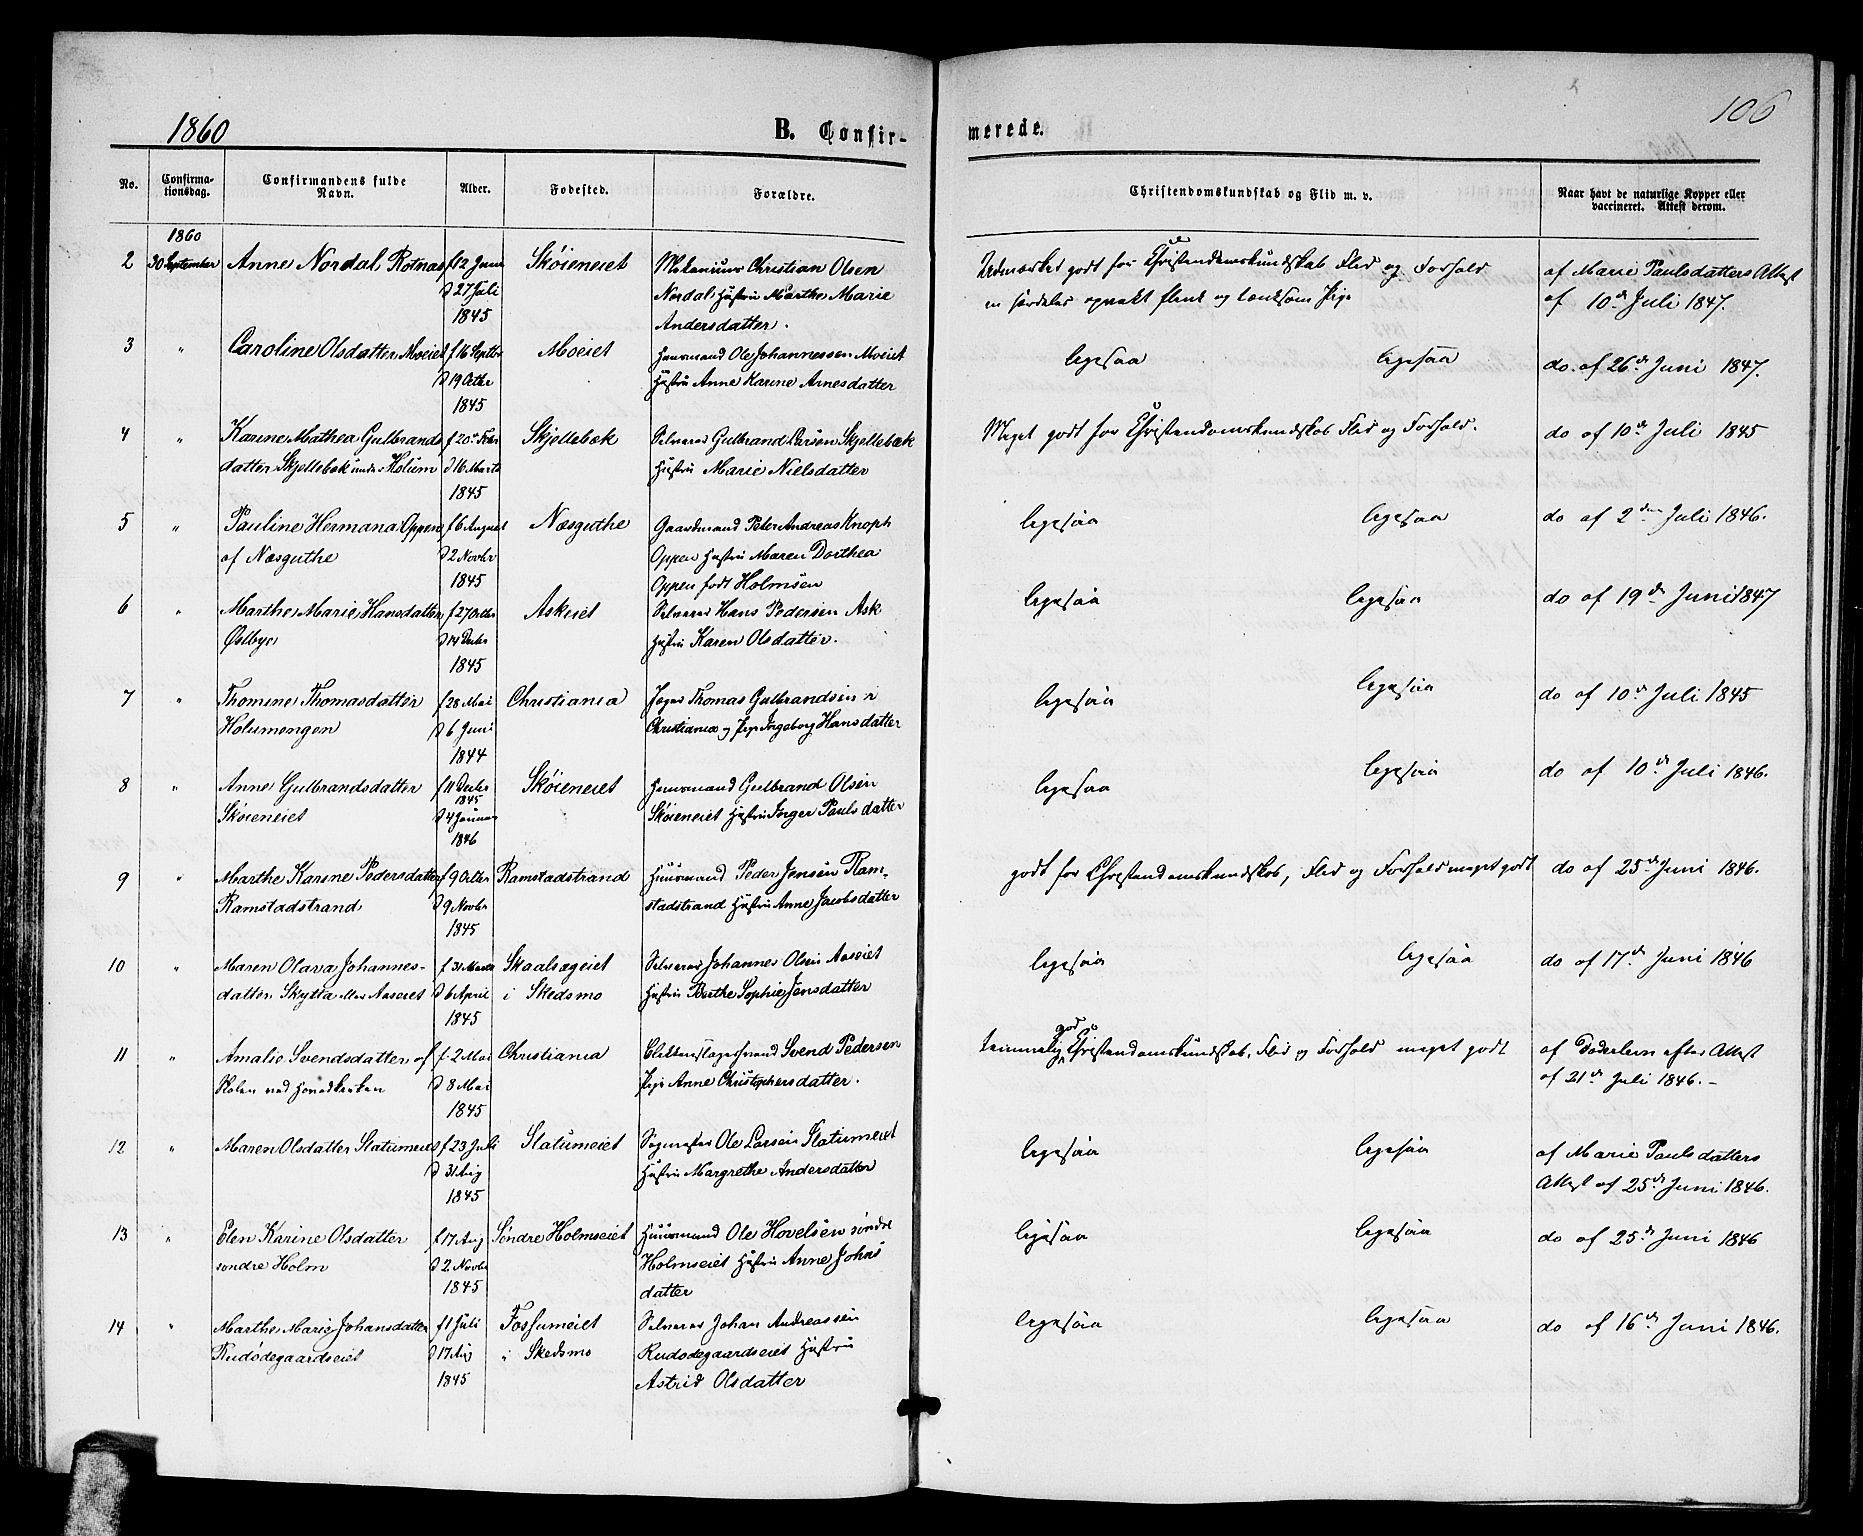 1860
B. Confir-
merede.
106
No.
Confirma-
tionsdag.
Confirmandens fulde
Navn.
Alder.
Fødested.
Forældre.
Christendomskundskab og Flid m. v.
Naar havt de naturlige Kopper eller
vaccineret. Attest derom.
1860
2 30 September Anne Nordal Rotnæs f 12 Juni Skøieneiet Christian Olsen godt for Christendomskundskab Flid og Forhold af Marie Paulsdatters Attest
d 27 Juli Nordal Hustru Marthe Marie og Pige af 10de Juli 1847.
1845 Andersdatter.
3 " Caroline Olsdatter Moeiet f 16 Septbr Moeiet Huusmand Ole Johannessen Moeiet ligesaa ligesaa do af 26de Juni 1847.
d 19 Octbr Hustru Anne Karine Arnesdatter
1845
4 " Karine Mathea Gulbrands f 20de Febr Skjellebæk Selveier Gulbrand Larsen Skjellebæk Meget godt for Christendomskundskab Flid og Forhold. do af 10de Juli 1845
datter Skjellebæk under Holum d 16 Marts Hustru Marie Nielsdatter
1845
5 " Pauline Hermana Oppen f 6 August Næsguthe Gaardmand Peter Andreas Knoph ligesaa ligesaa do af 2den Juli 1846.
af Næsguthe d 2 Novbr Oppen Hustru Maren Dorthea
1845 Oppen født Holmsen
6 " Marthe Marie Hansdatter f 27 Octbr Askeiet Selveier Hans Pedersen Ask ligesaa ligesaa do af 19de Juni 1847
Østbye d 14 Decbr Hustru Karen Olsdatter.
1845
7 " Thomine Thomasdatter f 28 Mai Christiania Thomas Gulbrandsen i ligesaa ligesaa do af 10de Juli 1845
Holumengen d 6 Juni Christiania og Pige Ingeborg Hansdatter
1844
8 " Anne Gulbrandsdatter f 11 Decbr Skøieneiet Huusmand Gulbrand Olsen ligesaa ligesaa do af 10de Juli 1846.
1845
Skøieneiet d 4 Januar Skøieneiet Hustru Inger Paulsdatter
1846
9 " Marthe Karine Pedersdatter f 9 Octbr Ramstadstrand Huusmand Peder Jensen Ram- godt for Christendomskundskab, Flid og Forhold meget godt do af 25de Juni 1846.
Ramstadstrand d 9 Novbr stadstrand Hustru Anne Jacobsdatter
1845
10 " Maren Olava Johannes- f 31 Marts Skaalsøgeiet Selveier Johannes Olsen Aaseiet ligesaa ligesaa do af 17de Juni 1846
datter Skytta eller Aaseiet d 6 April i Skedsmo Hustru Berthe Sophie Jensdatter
1845
11 " Amalie Svendsdatter af f 2 Mai Christiania Svend Pedersen temmelig god Christendomskundskab, Flid og Forhold meget godt af Døderlein efter Attest
Skolen ved Hovedkirken d 8 Mai Pige Anne Christophersdatter. af 21de Juli 1846. -
1845
12 " Maren Olsdatter Slatumeiet f 23 Juli Slatumeiet Sagmester Ole Larsen Slatumeiet ligesaa ligesaa af Marie Paulsdatters
d 31 Aug Hustru Margrethe Andersdatter Attest af 25de Juni 1846.
1845
13 " Elen Karine Olsdatter f 17 Aug Søndre Holmseiet Huusmand Ole Hovelsen søndre ligesaa ligesaa do af 25de Juni 1846
søndre Holm d 2 Novbr Holmseiet Hustru Anne Johns
1845 datter
14 " Marthe Marie Johansdatter f 1 Juli Fossumeiet Selveier Johan Andreassen ligesaa ligesaa do af 16de Juni 1846.
Rudødegaardseiet d 17 Aug i Skedsmo Rudødegaardseiet Hustru
1845 Astrid Olsdatter